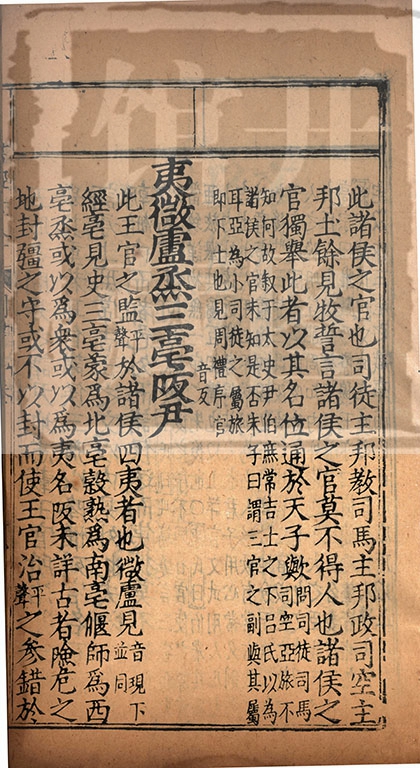 此諸侯之官也司徒主邦教司馬主邦政司空主
邦土餘見牧誓言諸侯之官莫不得人也諸侯之
官獨舉此者以其名位通於天子歟問司徒司馬司空亞旅不
知何故敘于太史尹伯庶常吉士之下呂氏以為
諸侯之官未知是否朱子曰謂三官之副與其屬
耳亞為小司徒之屬旅
即下士也見周禮序官
夷微盧烝三亳阪尹音反
此王官之監平聲於諸侯四夷者也微盧見音現下並同
經亳見史三亳蒙為北亳穀熟為南亳偃師為西
亳烝或以為衆或以為夷名阪未詳古者險危之
地封疆之守或不以封而使王官治平聲之參錯於